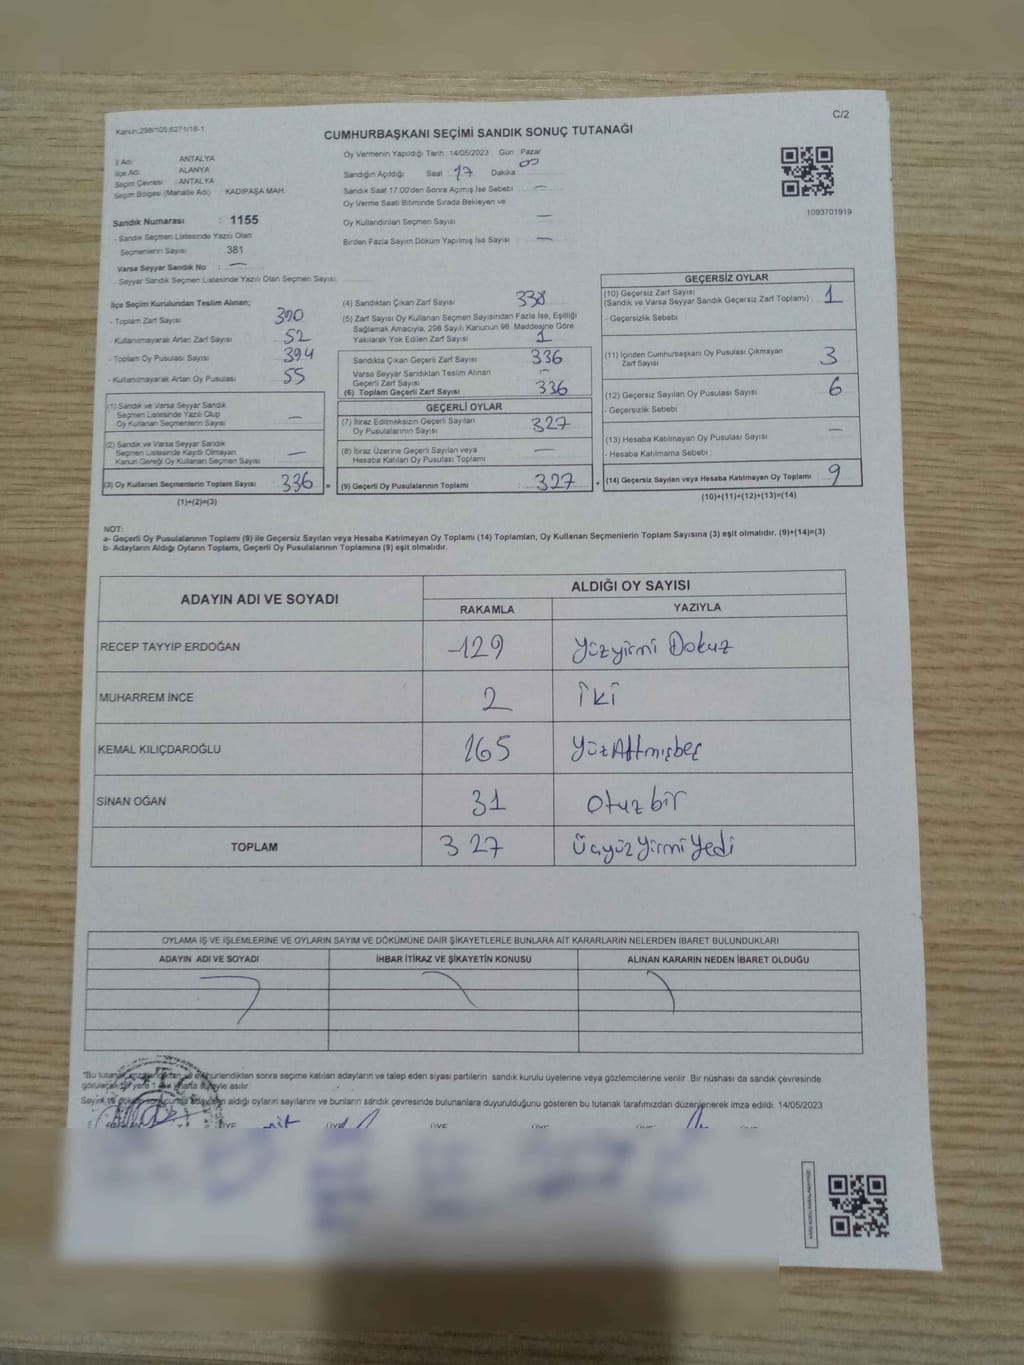 Kanun:298/105;6271/18-1
C/2
CUMHURBAŞKANI SEÇİMİ SANDIK SONUÇ TUTANAĞI
İl Adı : ANTALYA
İlçe Adı : ALANYA
Seçim Çevresi : ANTALYA
Seçim Bölgesi (Mahalle Adı) KADIPAŞA MAH.
Sandık Numarası : 1155
- Sandık Seçmen Listesinde Yazılı Olan
Seçmenlerin Sayısı 381
Varsa Seyyar Sandık No : —
- Seyyar Sandık Seçmen Listesinde Yazılı Olan Seçmen Sayısı
Oy Vermenin Yapıldığı Tarih : 14/05/2023 Gün : Pazar
Sandığın Açıldığı Saat 17 Dakika 00
Sandık Saat 17:00'den Sonra Açımış İse Sebebi —
Oy Verme Saati Bitiminde Sırada Bekleyen ve
Oy Kullandırılan Seçmen Sayısı —
Birden Fazla Sayım Döküm Yapılmış İse Sayısı —
1093701919
İlçe Seçim Kurulundan Teslim Alınan;
- Toplam Zarf Sayısı 390
- Kullanılmayarak Artan Zarf Sayısı 52
- Toplam Oy Pusulası Sayısı 394
- Kullanılmayarak Artan Oy Pusulası 55
(1) Sandık ve Varsa Seyyar Sandık
Seçmen Listesinde Yazılı Olup
Oy Kullanan Seçmenlerin Sayısı —
(2) Sandık ve Varsa Seyyar Sandık
Seçmen Listesinde Kayıtlı Olmayan
Kanun Gereği Oy Kullanan Seçmen Sayısı —
(3) Oy Kullanan Seçmenlerin Toplam Sayısı 336 =
(1)+(2)=(3)
(4) Sandıktan Çıkan Zarf Sayısı 338
(5) Zarf Sayısı Oy Kullanan Seçmen Sayısından Fazla İse, Eşitliği
Sağlamak Amacıyla, 298 Sayılı Kanunun 98. Maddesine Göre
Yakılarak Yok Edilen Zarf Sayısı 1
Sandıkta Çıkan Geçerli Zarf Sayısı 336
Varsa Seyyar Sandıktan Teslim Alınan
Geçerli Zarf Sayısı —
(6) Toplam Geçerli Zarf Sayısı 336
GEÇERLİ OYLAR
(7) İtiraz Edilmeksizin Geçerli Sayılan
Oy Pusulalarının Sayısı 327
(8) İtiraz Üzerine Geçerli Sayılan veya
Hesaba Katılan Oy Pusulası Toplamı —
(9) Geçerli Oy Pusulalarının Toplamı : 327 +
GEÇERSİZ OYLAR
(10) Geçersiz Zarf Sayısı
(Sandık ve Varsa Seyyar Sandık Geçersiz Zarf Toplamı) 1
- Geçersizlik Sebebi
(11) İçinden Cumhurbaşkanı Oy Pusulası Çıkmayan
Zarf Sayısı 3
(12) Geçersiz Sayılan Oy Pusulası Sayısı 6
- Geçersizlik Sebebi
(13) Hesaba Katılmayan Oy Pusulası Sayısı —
- Hesaba Katılmama Sebebi
(14) Geçersiz Sayılan veya Hesaba Katılmayan Oy Toplamı 9
(10)+(11)+(12)+(13)=(14)
NOT:
a- Geçerli Oy Pusulalarının Toplamı (9) ile Geçersiz Sayılan veya Hesaba Katılmayan Oy Toplamı (14) Toplamları, Oy Kullanan Seçmenlerin Toplam Sayısına (3) eşit olmalıdır. (9)+(14)=(3)
b- Adayların Aldığı Oyların Toplamı, Geçerli Oy Pusulalarının Toplamına (9) eşit olmalıdır.
ADAYIN ADI VE SOYADI
ALDIĞI OY SAYISI
RAKAMLA YAZIYLA
RECEP TAYYİP ERDOĞAN 129 Yüzyirmi Dokuz
MUHARREM İNCE 2 İki
KEMAL KILIÇDAROĞLU 165 YüzAltmışbeş
SİNAN OĞAN 31 Otuzbir
TOPLAM 327 ÜçyüzYirmiYedi
OYLAMA İŞ VE İŞLEMLERİNE VE OYLARIN SAYIM VE DÖKÜMÜNE DAİR ŞİKAYETLERLE BUNLARA AİT KARARLARIN NELERDEN İBARET BULUNDUKLARI
ADAYIN ADI VE SOYADI İHBAR İTİRAZ VE ŞİKAYETİN KONUSU ALINAN KARARIN NEDEN İBARET OLDUĞU
"Bu sonra seçime katılan adayların ve talep eden siyasi partilerin sandık kurulu üyelerine veya gözlemcilerine verilir. Bir nüshası da sandık çevresinde
asılır.
aldığı oyların sayılarını ve bunların sandık çevresinde bulunanlara duyurulduğunu gösteren bu tutanak tarafımızdan düzenlenerek imza edildi. 14/05/2023